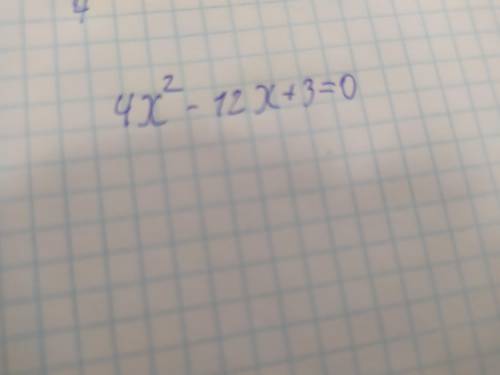 4x² - 12x+3=0